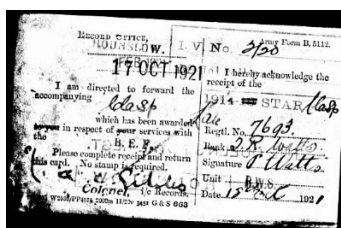 RECORD OFFICE,
HOUNSLOW.
17 OCT 1921
I am directed to forward the
accompanying Clasp
which has been awarded
to you in respect of your services with
the B. E. F.
Please complete receipt and return
this card. No stamp is required.
Colonel, i/c Records.
I. V. No. 2/20 Army Form B. 5112.
I hereby acknowledge the
receipt of the
1914 STAR Clasp
Regtl. No. 7693
Rank
Signature Watts
Unit R.W.S.
Date 18 1921